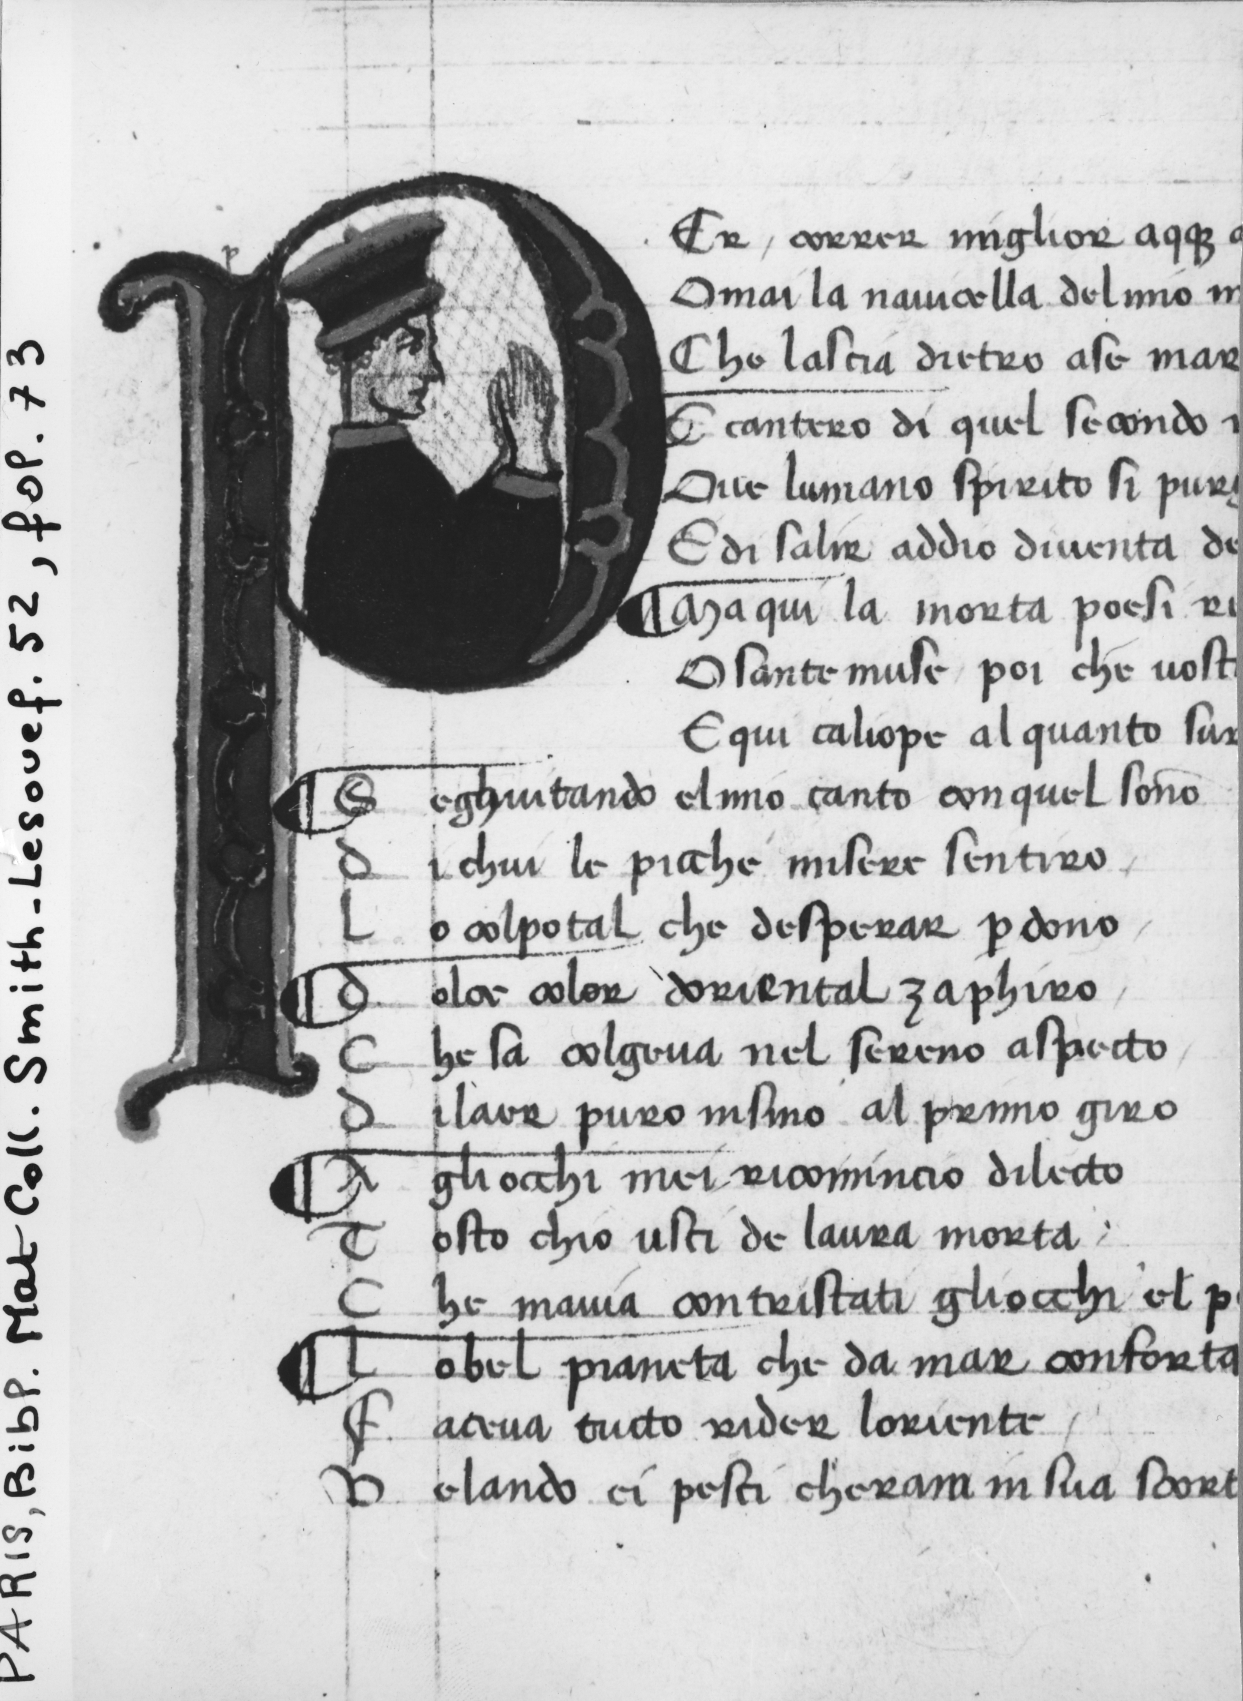 PARIS, Bibl. Nat Coll. Smith-Lesouef. 52, fol. 73
p
PEr correr miglior aqq̃
Omai la nauicella del mio
Che lascia dietro ase mar
E cantero di quel secondo
Oue lumano spirito si purg
E di salir addio diuenta de
Ma qui la morta poesi ri
O sante muse poi che uost
E qui caliope al quanto sur
Seghuitando el mio canto con quel sono
di chui le picche misere sentiro
Lo colpo tal che desperar pdono
dolce color doriental zaphiro
Che sa colgeua nel sereno aspecto
dilaer puro insino al primo giro
A gliocchi mei ricomincio dilecto
Tosto chio usci de laura morta
Che mauia contristati gliocchi el p
Lo bel pianeta che da mar conforta
Faceua tucto rider loriente
Velando ei pesci cheram in sua scort